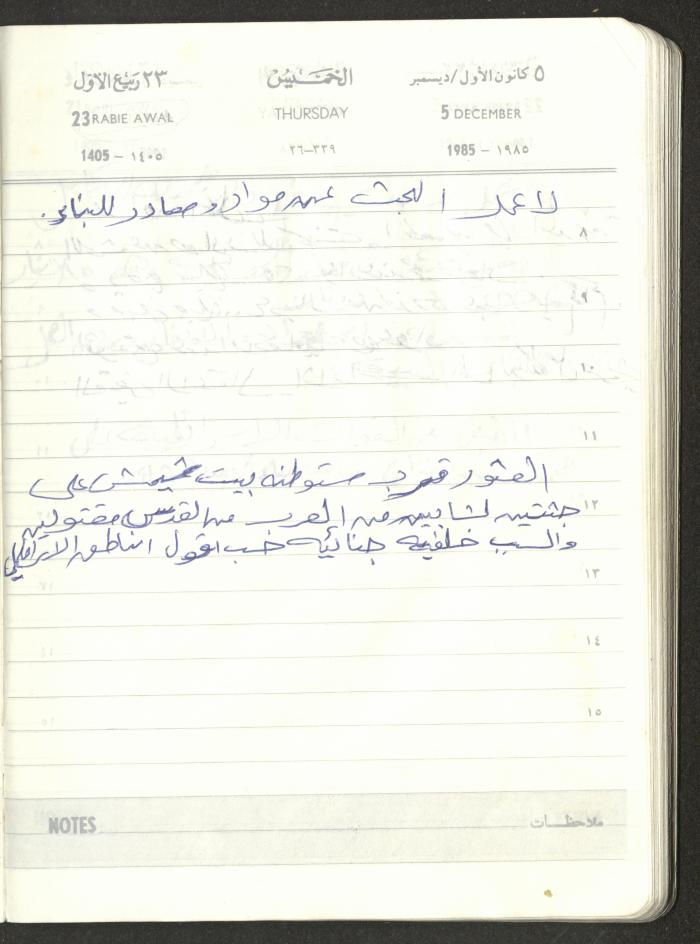 ٥ كانون الأول/ديسمبر الخميس ٢٣ ربيع الاول
5 DECEMBER THURSDAY 23 RABIE AWAL
1985 - ١٩٨٥ ٣٣٩-٢٦ 1405 - ١٤٠٥
لا عمل البحث عن مواد ومصادر للبناء.
٨
٩
١٠
١١
العثور قرب مستوطنه بيت شيمش على
١٢
جثتين لشابين من العرب من القدس مقتولين
والسبب خلفيه جنائيه حسب اقول الناطق الاسرائيلي
١٣
١٤
١٥
NOTES ملاحظات